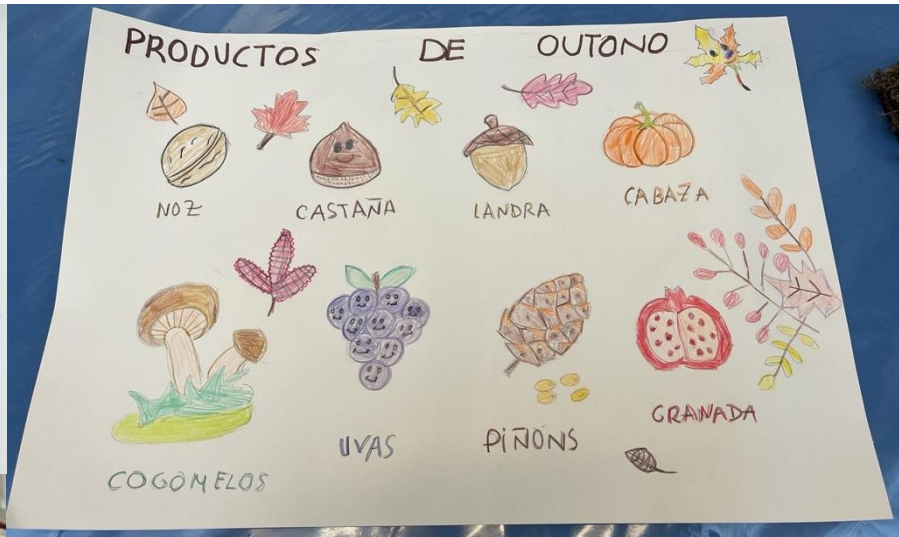 PRODUCTOS DE OUTONO
NOZ
CASTAÑA
LANDRA
CABAZA
COGOMELOS
UVAS
PIÑÓNS
GRANADA